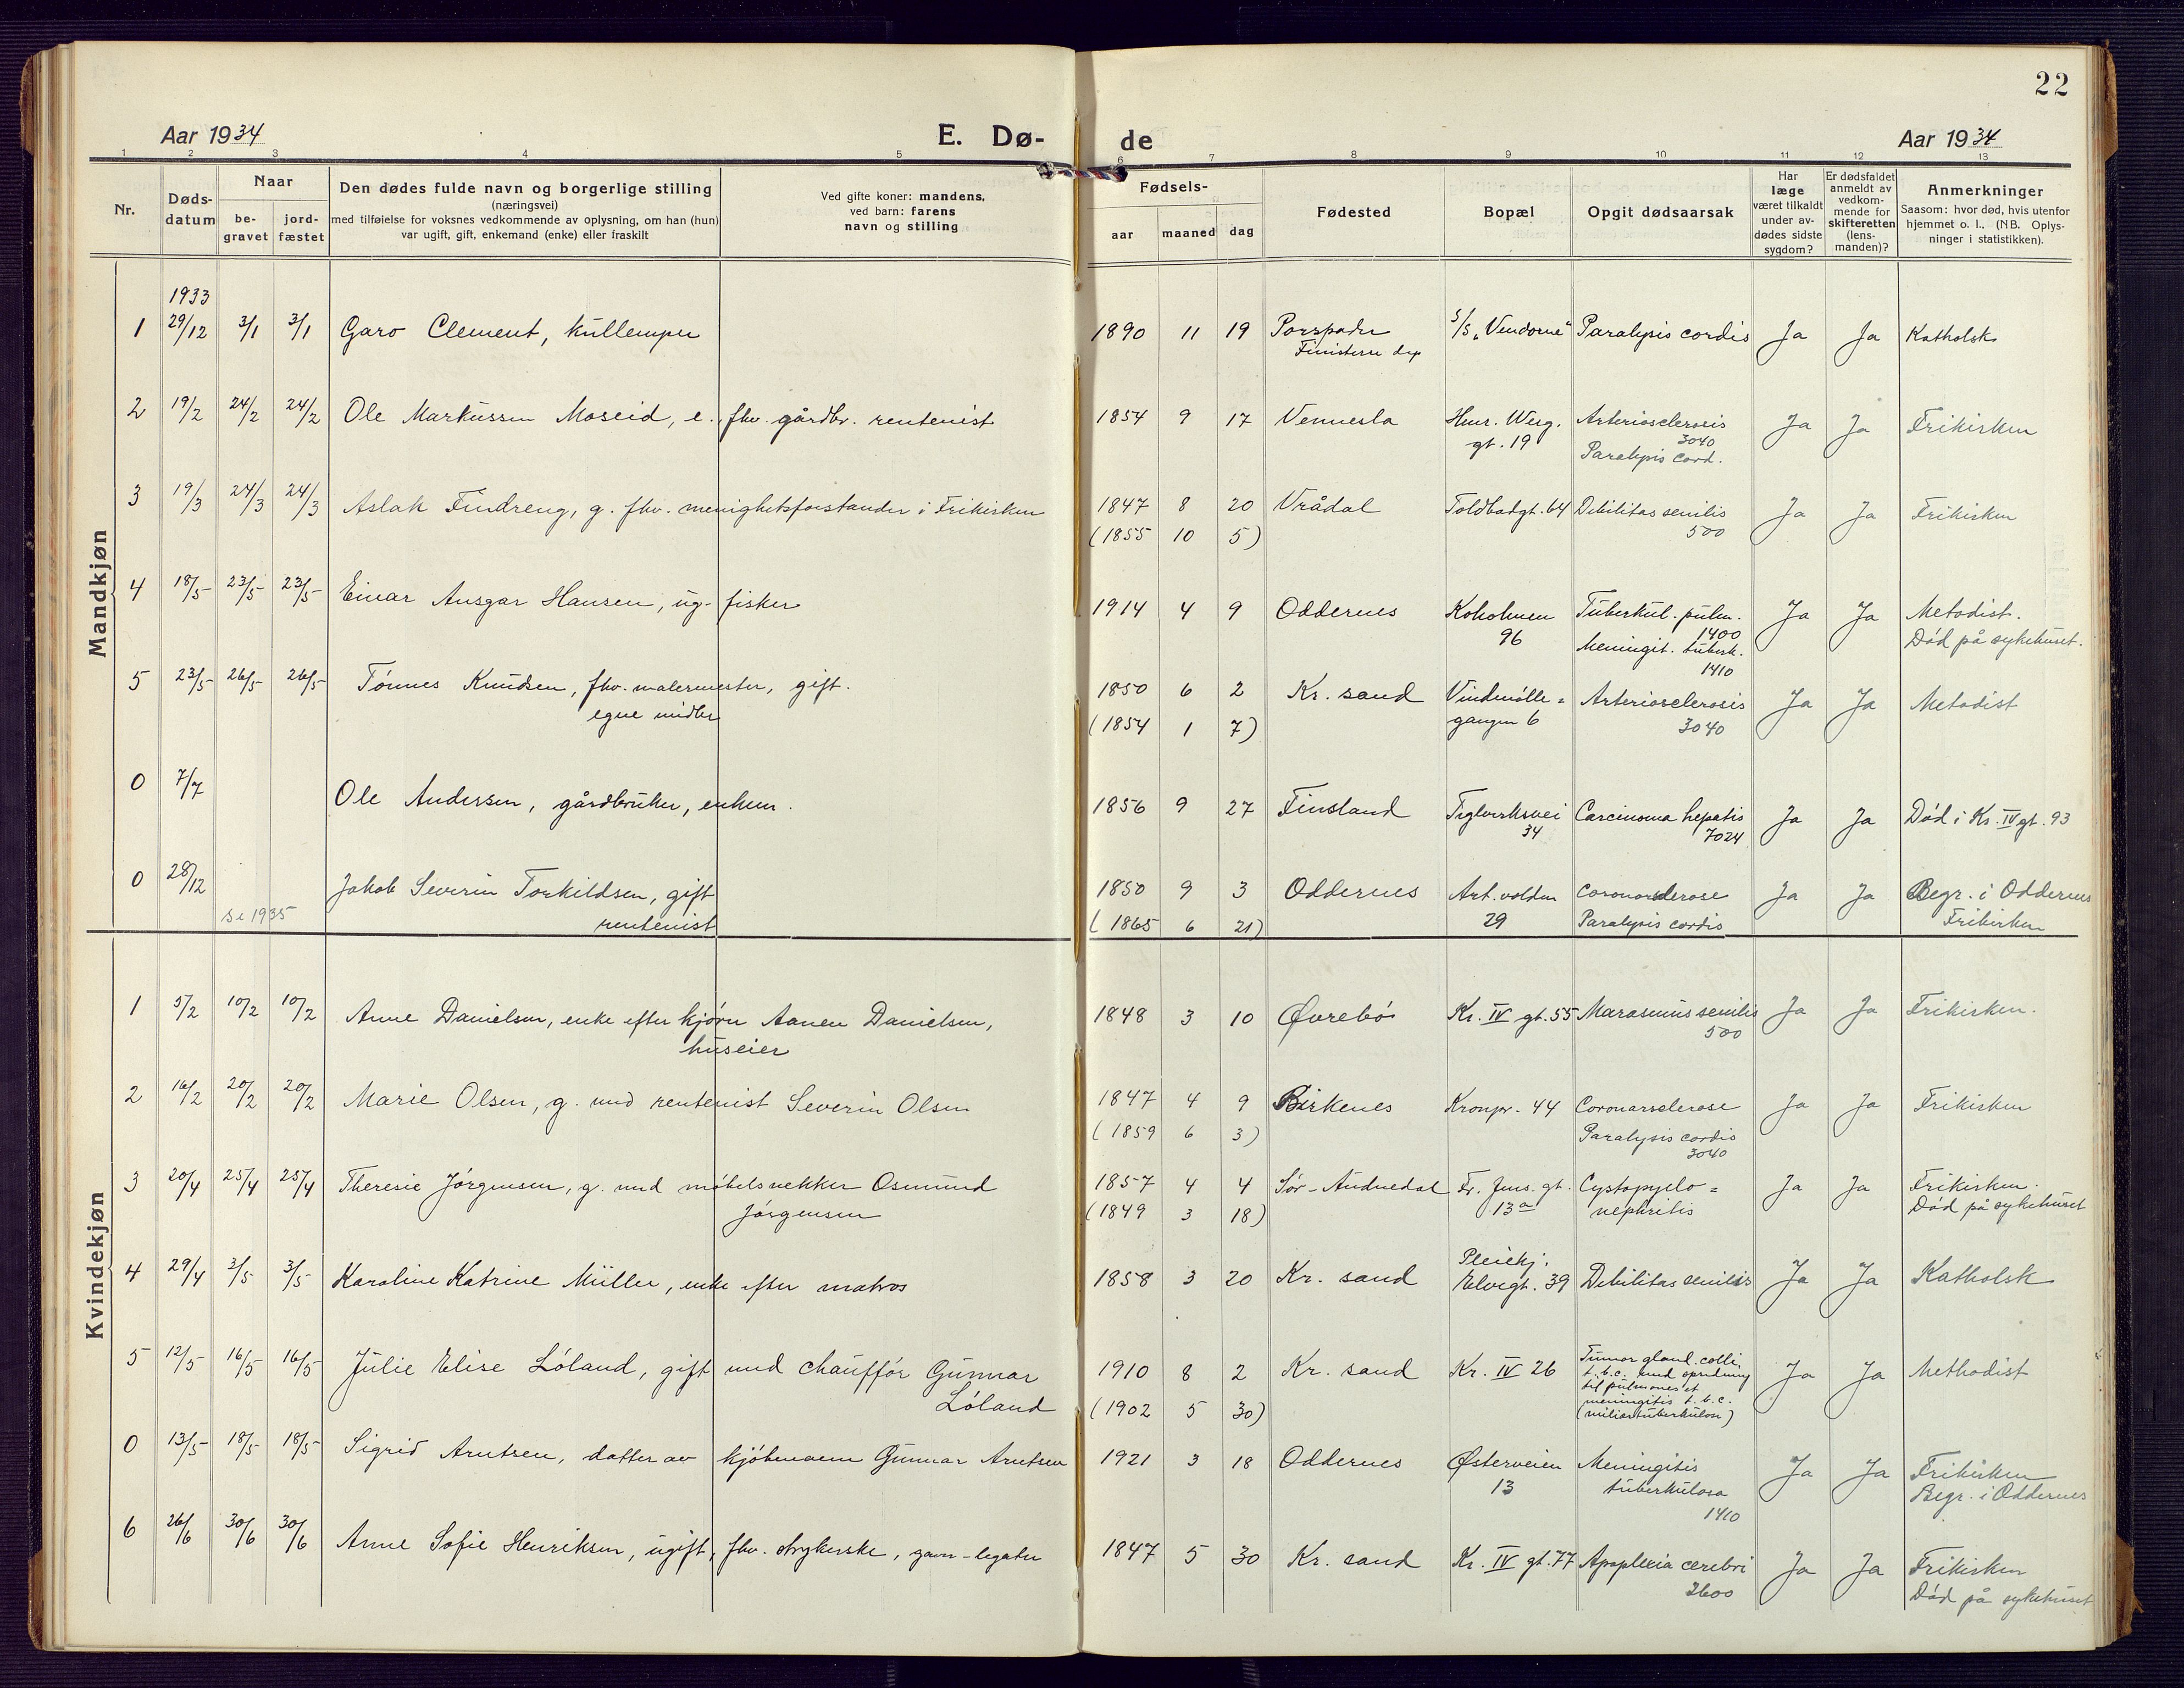 22
Aar 1934
E. Dø-
de
Aar 1934
1 2 3 4 5 6 7 8 9 10 11 12 13
Nr.
Døds-
datum
Naar
be-
gravet
jord-
fæstet
Den dødes fulde navn og borgerlige stilling
(næringsvei)
med tilføielse for voksnes vedkommende av oplysning, om han (hun)
var ugift, gift, enkemand (enke) eller fraskilt
Ved gifte koner: mandens,
ved barn: farens
navn og stilling
Fødsels-
aar maaned dag
Fødested
Bopæl
Opgit dødsaarsak
Har
læge
været tilkaldt
under av-
dødes sidste
sygdom?
Er dødsfaldet
anmeldt av
vedkom-
mende for
skifteretten
(lens-
manden)?
Anmerkninger
Saasom: hvor død, hvis utenfor
hjemmet o. l., (NB. Oplys-
ninger i statistikken).
Mandkjøn
1933
1 29/12 3/1 3/1 Garo Clement, kullemper 1890 11 19 Porspoder S/S „Vendome" Paralysis cordis Ja Ja Katholsk
Finisterre dep
2 19/2 24/2 24/2 Ole Markussen Moseid, e., fhv. gårdbr. rentenist 1854 9 17 Vennesla Henr. Werg. Arteriosclerosis Ja Ja Frikirken
gt. 19 3040
Paralysis cord.
3 19/3 24/3 24/3 Aslak Findreng, g. fhv. menighetsforstander i Frikirken 1847 8 20 Vrådal Toldbodgt. 64 Debilitas senilis Ja Ja Frikirken
(1855 10 5) 500
4 18/5 23/5 23/5 Einar Ansgar Hansen, ug. fisker 1914 4 9 Oddernes Kokolmen Tuberkul. pulm. Ja Ja Metodist.
96 1400 Død på sykehuset.
Meningit. tuberk.
1410
5 23/5 26/5 26/5 Tønnes Knudsen, fhv. malermester, gift. 1850 6 2 Kr. sand Vindmølle= Arteriosclerosis Ja Ja Metodist
egne midler (1854 1 7) gangen 6 3040
0 7/7 Ole Andersen, gårdbruker, enkem. 1856 9 27 Finsland Teglverksvei Carcinoma hepatis Ja Ja Død i Kr. IV gt. 93
34 7024
0 28/12 Jakob Severin Torkildsen, gift 1850 9 3 Oddernes Art. volden Coronarsclerose Ja Ja Begr. i Oddernes
Se 1935 rentenist (1865 6 21) 29 Paralysis cordis Frikirken
Kvindekjøn
1 5/2 10/2 10/2 Anne Danielsen, enke efter kjører Aanen Danielsen, 1848 3 10 Øvrebø Kr. IV gt. 55 Marasmus senilis Ja Ja Frikirken.
huseier 500
2 16/2 20/2 20/2 Marie Olsen, g. med rentenist Severin Olsen 1847 4 9 Birkenes Kronpr. 44 Coronarsclerose Ja Ja Frikirken
(1859 6 3) Paralysis cordis
3040
3 20/4 25/4 25/4 Theresie Jørgensen, g. med møbelsnekker Osmund 1857 4 4 Sør-Audnedal Fr. Jens. gt. Cystopyelo= Ja Ja Frikirken.
Jørgensen (1849 3 18) 13a nephritis Død på sykehuset
4 29/4 3/5 3/5 Karoline Katrine Müller, enke efter matros 1858 3 20 Kr. sand Pleiehj. Debilitas senilis Ja Ja Katholsk
Elvegt. 39
5 12/5 16/5 16/5 Julie Elise Løland, gift med chauffør Gunnar 1910 8 2 Kr. sand Kr. IV 26 Tumor gland. colli, Ja Ja Methodist
Løland (1902 5 30) t.b.c. med spredning
til pulmones et
meningitis t.b.c.
(miliærtuberkulose)
0 13/5 18/5 18/5 Sigrid Arntsen, datter av kjøbmann Gunnar Arntsen 1921 3 18 Oddernes Østerveien Meningitis Ja Ja Frikirken
13 tuberkulosa Begr. i Oddernes
1410
6 26/6 30/6 30/6 Anne Sofie Henriksen, ugift, fhv. strykerske, gavn-legater 1847 5 30 Kr. sand Kr. IV gt. 77 Apoplexia cerebri Ja Ja Frikirken
2600 Død på sykehuset